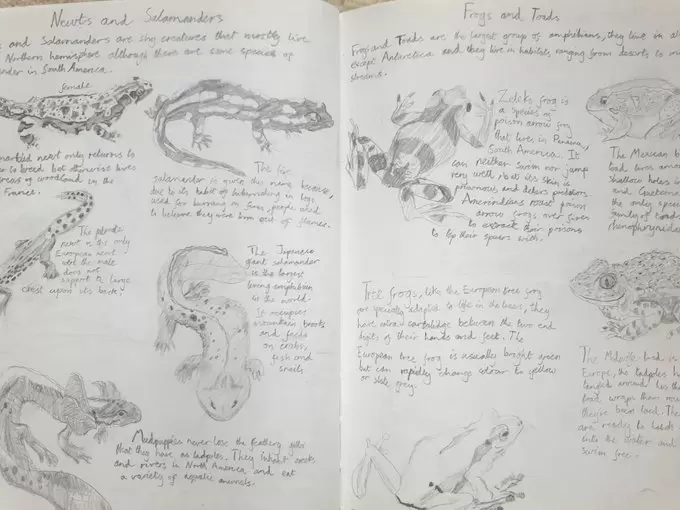 Newts and Salamanders
and Salamanders are shy creatures that mostly live
Northern hemisphere although there are some species of
ander in South America.
female
marbled newt only returns to
to breed but otherwise lives
areas of woodland in the
France.
The fire
salamander is given this name because,
due to its habit of hibernating in logs
used for burning on fires, people used
to believe they were born out of flames.
The palmate
newt is the only
European newt
were the male
does not
support a large
crest upon its back.
The Japanese
giant salamander
is the largest
living amphibian
in the world.
It occupies
mountain brooks
and feeds
on crabs,
fish and
snails.
Mudpuppies never lose the feathery gills
that they have as tadpoles. They inhabit creeks
and rivers in North America and eat
a variety of aquatic animals.
Frogs and Toads
Frogs and Toads are the largest group of amphibians, they live in
except Antarctica and they live in habitats ranging from deserts to
streams.
Zeteks frog is
a species of
poison arrow frog
that lives in Panama,
South America. It
can neither swim nor jump
very well, but its skin is
poisonous and deters predators.
Amerindians roast poison
arrow frogs over fires
to extract their poisons
to tip their spears with.
The Mexican b
toad lives among
shallow holes in
and Guatema
the only spec
family of toads
rhinophrynidae
Tree frogs, like the European tree frog
are specially adapted to life in the trees, they
have extra cartilage between the two end
bones of their hands and feet. The
European tree frog is usually bright green
but can rapidly change colour to yellow
or slate grey.
The Midwife toad is
Europe, the tadpoles
around his
toad wraps
they've been laid. The
are ready to hatch
into the water and
swim free.